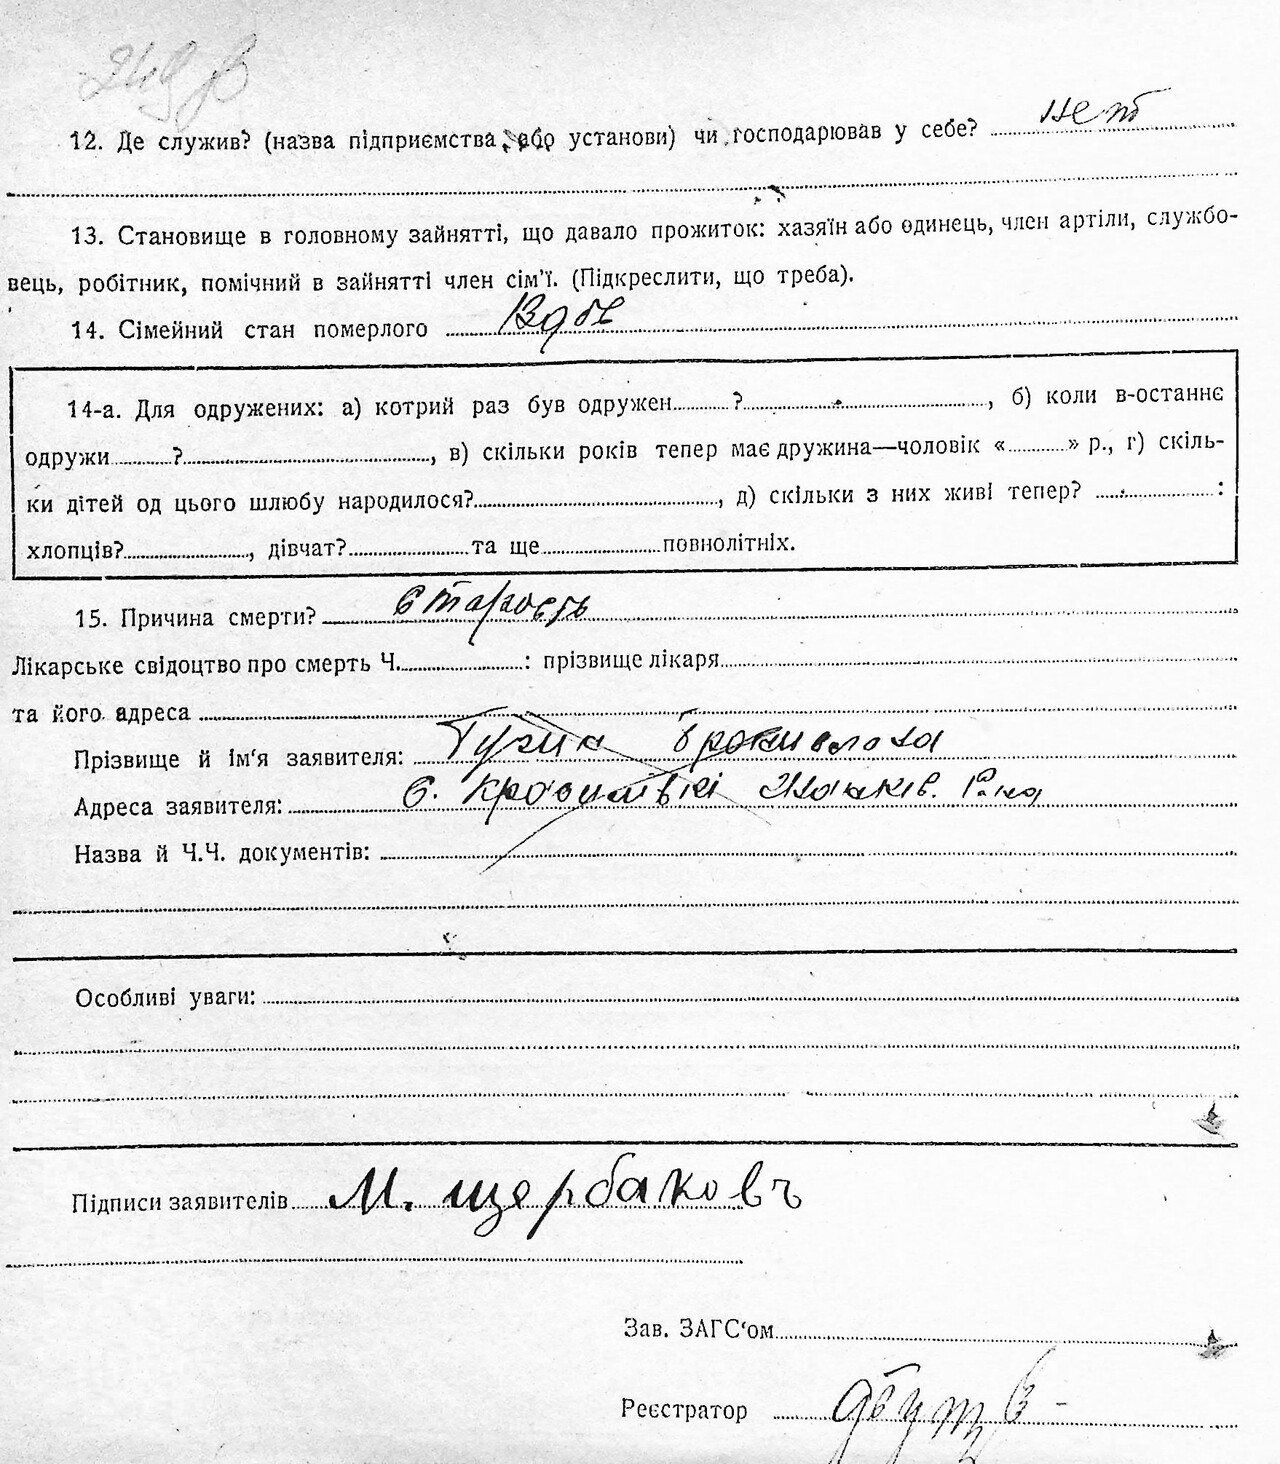 12. Де служив? (назва підприємства або установи) чи господарював у себе? нет
13. Становище в головному зайнятті, що давало прожиток: хазяїн або одинець, член артіли, службо-
вець, робітник, помічний в зайнятті член сім'ї. (Підкреслити, що треба).
14. Сімейний стан померлого Вдов
14-а. Для одружених: а) котрий раз був одружен ? , б) коли в-останнє
одружи ? , в) скільки років тепер має дружина—чоловік « » р., г) скіль-
ки дітей од цього шлюбу народилося? , д) скільки з них живі тепер? :
хлопців? , дівчат? та ще повнолітніх.
15. Причина смерти? Старость
Лікарське свідоцтво про смерть Ч. : прізвище лікаря
та його адреса
Прізвище й ім'я заявителя:
Адреса заявителя: С.
Назва й Ч.Ч. документів:
Особливі уваги:
Підписи заявителів М. Щербаковъ
Зав. ЗАГС'ом
Реєстратор